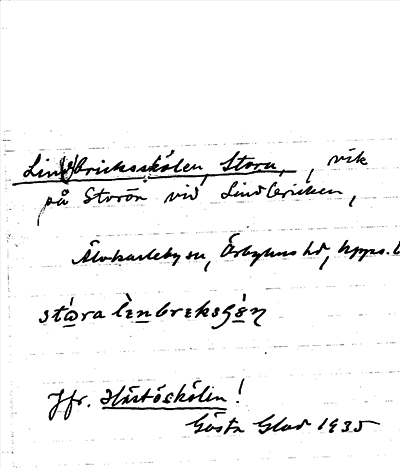 Lin(d)bricksskölen, Stora, vik
på Storön vid Lindbricken,
Älvkarleby sn, Örbyhus hd, Upps. l
stὼra lὲnbrekshö̀ŋ
Jfr. Hästöskölen!
Gösta Glad 1935